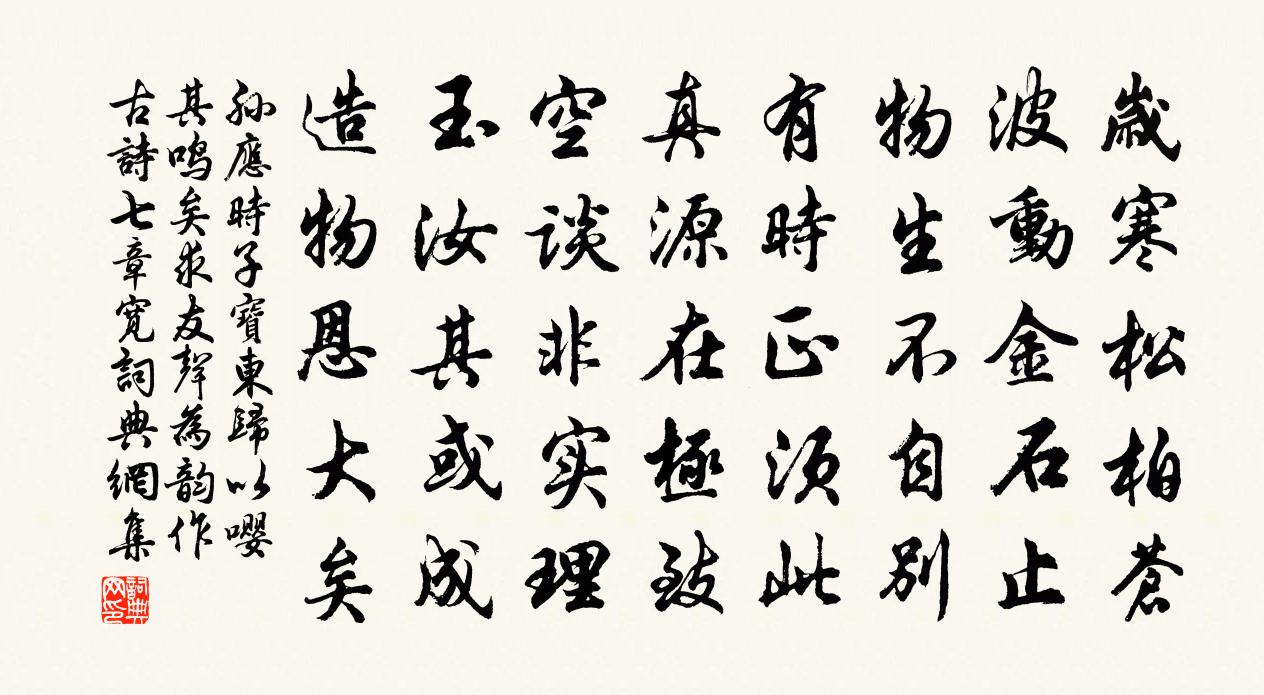 歲寒松柏蒼
波動金石止
物生不自別
有時正須此
真源在極致
空談非实理
玉汝其或成
造物恩大矣
孫應時子寶東歸以嚶
其鸣矣求友聲為韵作
古詩七章寬詞典網集
詞典网印